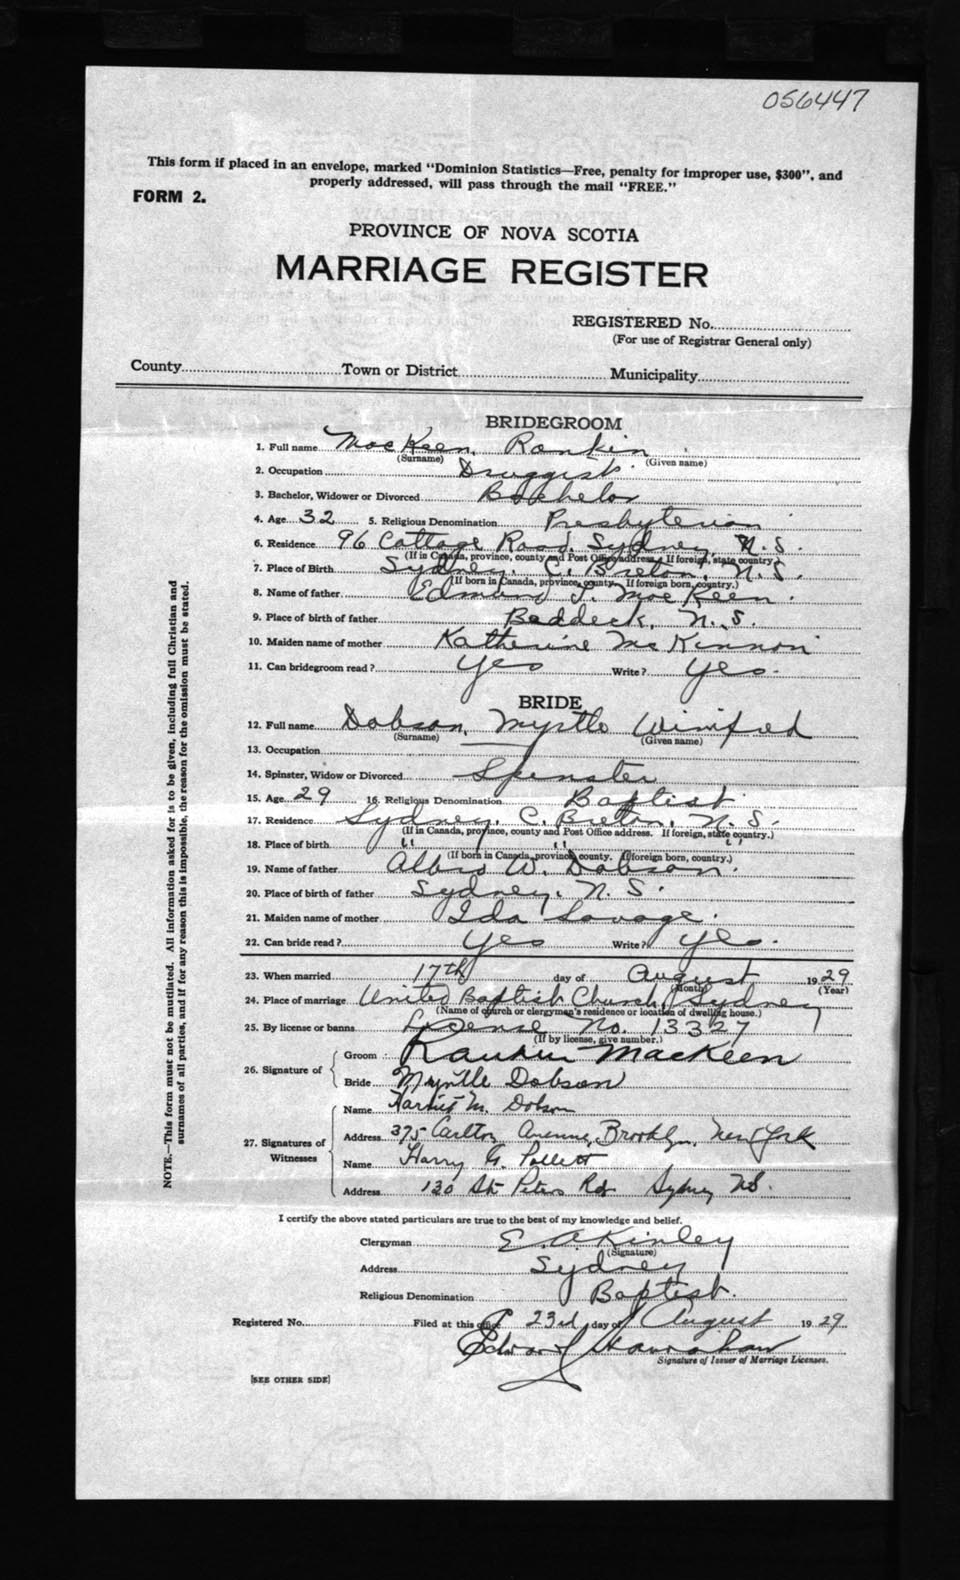 056447
This form if placed in an envelope, marked "Dominion Statistics—Free, penalty for improper use, $300", and
properly addressed, will pass through the mail "FREE."
FORM 2.
PROVINCE OF NOVA SCOTIA
MARRIAGE REGISTER
REGISTERED No.
(For use of Registrar General only)
County Town or District Municipality
BRIDEGROOM
1. Full name MacKeen, Rankin
(Surname) (Given name)
2. Occupation Druggist.
3. Bachelor, Widower or Divorced Bachelor
4. Age 32 5. Religious Denomination Presbyterian
6. Residence 96 Cottage Road, Sydney, N.S.
(If in Canada, province, county and Post Office address. If foreign, state country.)
7. Place of Birth Sydney, C. Breton, N.S.
(If born in Canada, province, county. If foreign born, country.)
8. Name of father Edmund T. MacKeen.
9. Place of birth of father Baddeck, N.S.
10. Maiden name of mother Katherine McKinnon
11. Can bridegroom read? Yes Write? Yes.
BRIDE
12. Full name Dobson, Myrtle Winifred
(Surname) (Given name)
13. Occupation
14. Spinster, Widow or Divorced Spinster
15. Age 29 16. Religious Denomination Baptist
17. Residence Sydney, C. Breton, N.S.
(If in Canada, province, county and Post Office address. If foreign, state country.)
18. Place of birth " " "
(If born in Canada, province, county. If foreign born, country.)
19. Name of father W. Dobson.
20. Place of birth of father Sydney, N.S.
21. Maiden name of mother Ida Savage.
22. Can bride read? Yes Write? Yes.
23. When married 17th day of August 1929
(Month) (Year)
24. Place of marriage United Baptist Church, Sydney
(Name of church or clergyman's residence or location of dwelling house.)
25. By license or banns License No. 13327
(If by license, give number.)
26. Signature of Groom: Rankin MacKeen
Bride Myrtle Dobson
27. Signatures of Witnesses
Name Harriet M. Dobson
Address 375 Carlton Avenue, Brooklyn, New York
Name Harry G. Pollett
Address 130 St Peters Rd Sydney NS.
I certify the above stated particulars are true to the best of my knowledge and belief.
Clergyman E. A. Kinley
(Signature)
Address Sydney
Religious Denomination Baptist.
Registered No. Filed at this office 23rd day of August 1929.
Edward Hanrahan
Signature of Issuer of Marriage Licenses.
[SEE OTHER SIDE]
NOTE.—This form must not be mutilated. All information asked for is to be given, including full Christian and
surnames of all parties, and if for any reason this is impossible, the reason for the omission must be stated.